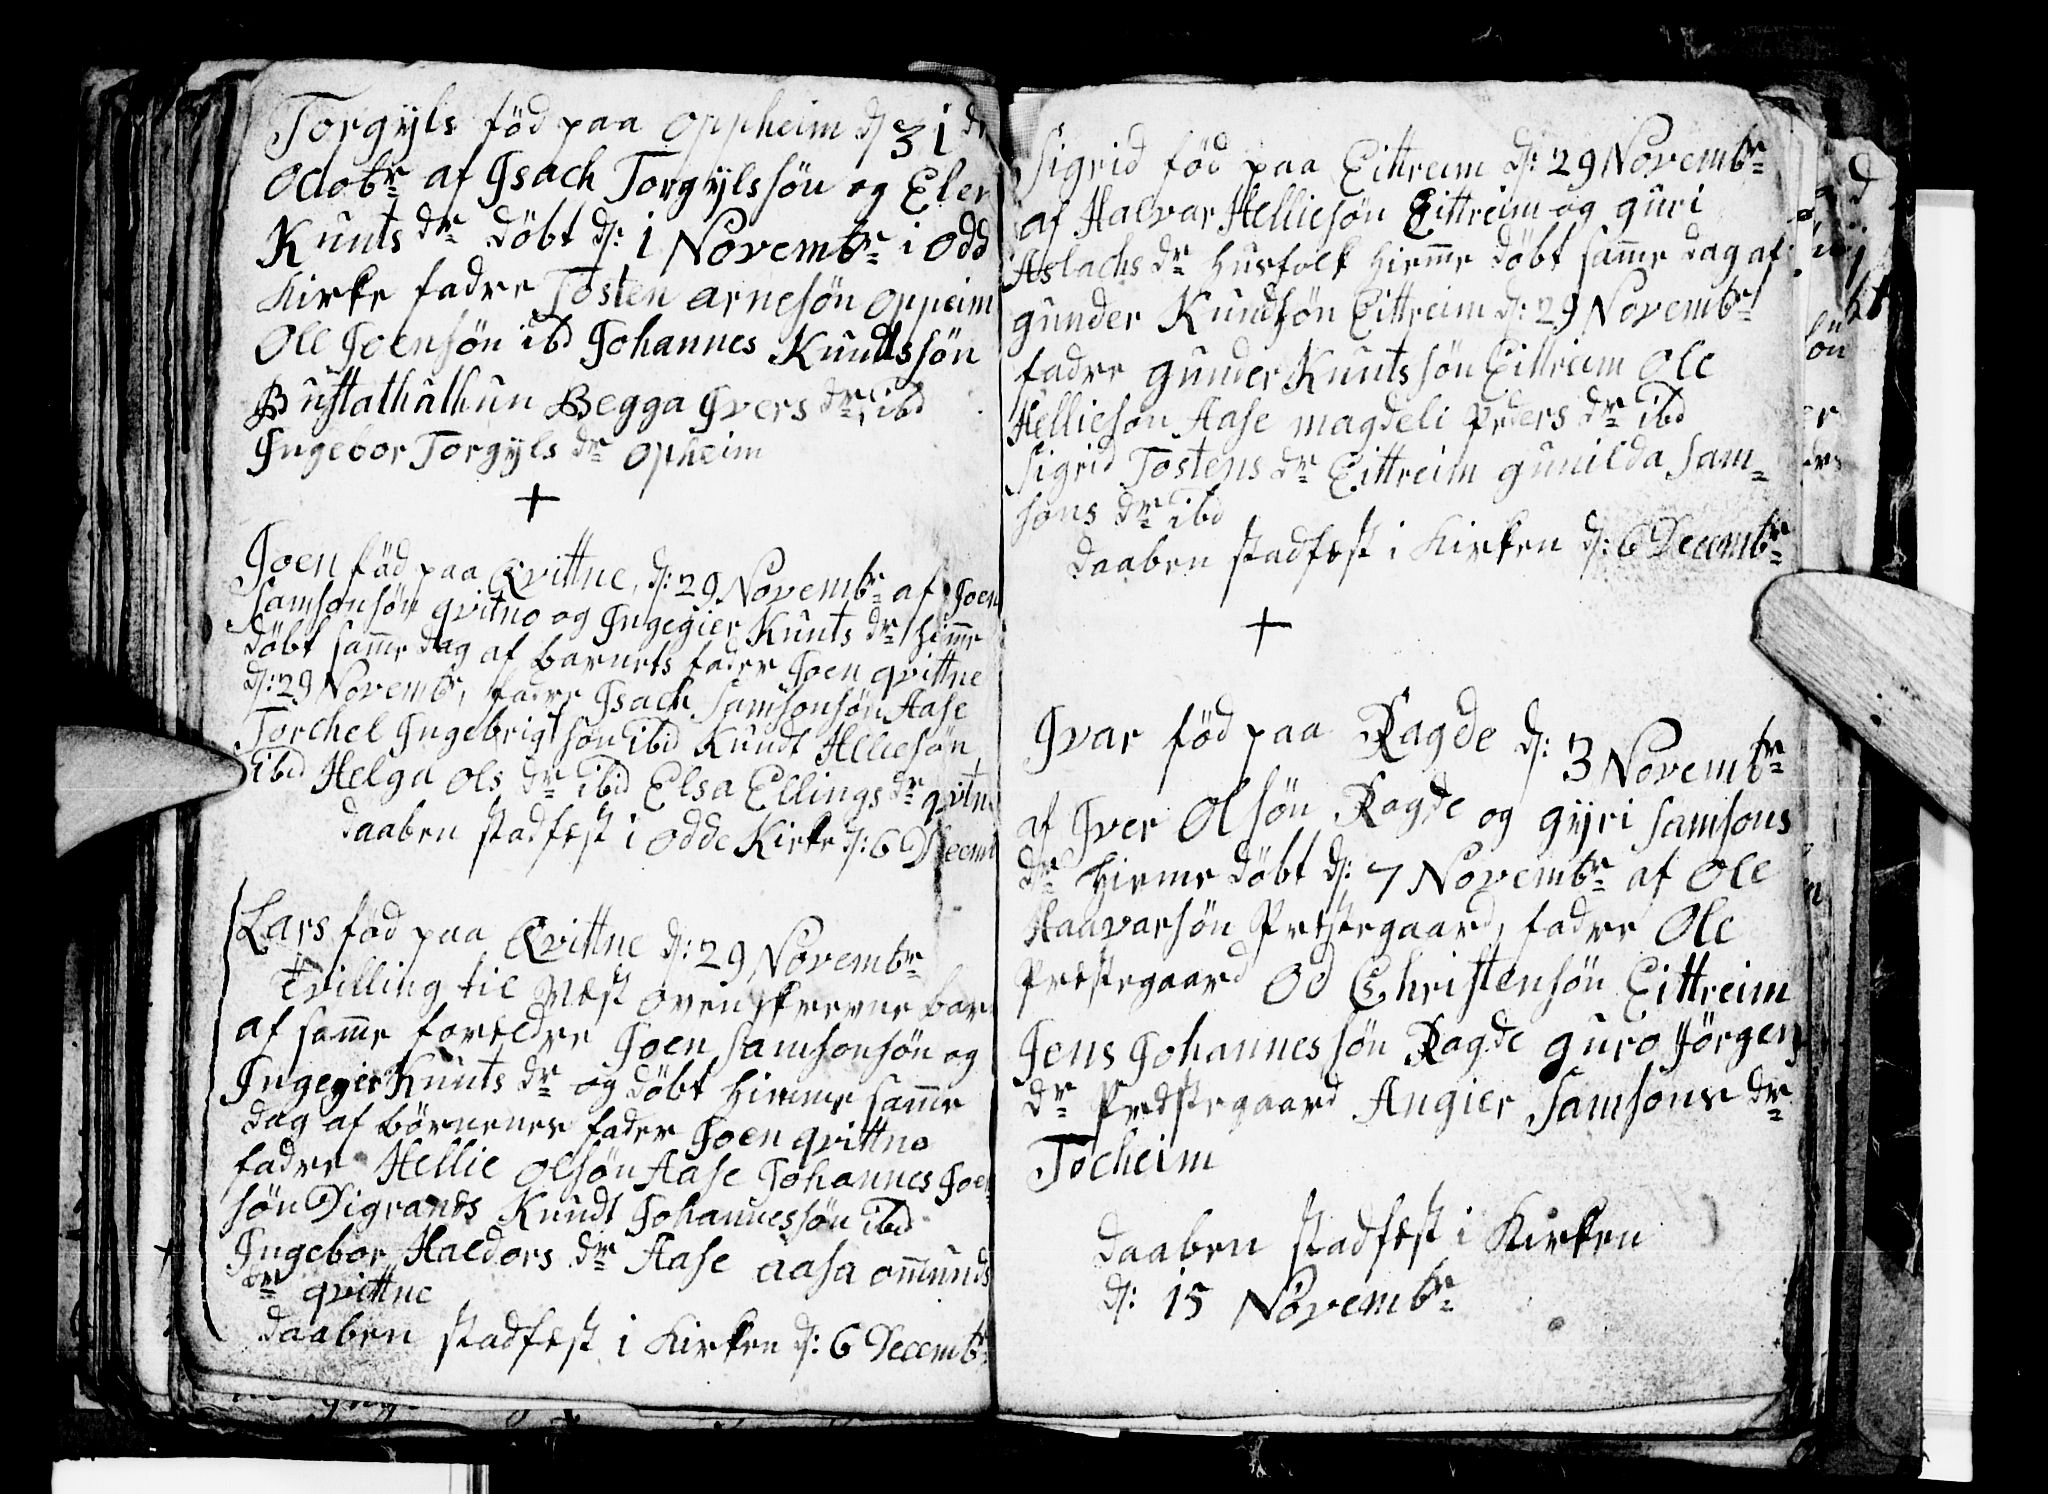 Torgÿls född paa oppheim dj 31 dr
Octobr af Jsach Torgÿlssön og Elen
Kunts dr döbt dj: 1 Novembr i Odd
Kirke fadre Tosten arnesön oppeim
Ole Joensön ibd Johannes Kundtssön
Begga Jvers dr ibd
Jngebor Torgÿls dr opheim
+
Joen föd paa Qvittne, dj: 29 Novembr af Joen
Samsonsön qvitno og Jngegier Kunts dr hieme
döbt same dag af barnets fader Joen qvittne
dj: 29 Novembr, fadre Jsach Samsonsön Aase
Torchel Jngebrigtsön ibid Kundt Helliesön
ibid Helga Ols dr ibid Elsa Ellings dr qvitn
daaben stadfest i Odde Kirke dj: 6 Decemb
Lars föd paa Qvittne dj: 29 Novembr
tvilling til næst ovenskrevne bar
af same foreldre Joen Samsonsön og
Jngegier Kunts dr og döbt hieme same
dag af börnenes fader Joen qvittno
fadre Hellie olsön Aase Johannes Joen
sön Digranes Kundt Johannessön ibd
Jngebor Haldors dr Aase aasa omunds
dr qvittne
daaben stadfest i Kirken dj: 6 Decembr
Sigrid föd paa Eittreim dj: 29 Novembr
af Halvar Helliesön Eittreim og guri
Aslachs dr husfolk hieme döbt same dag af
gunder Kundsön Eittreim dj: 29 Novembr
fadre gunder Kuntssön Eittreim Ole
Helliesön Aase magdeli Peders dr ibd
Sigrid Tostens dr Eittreim gunilda Sam-
sons dr ibd
daaben stadfest i Kirken dj: 6 Decembr
+
Jvar föd paa Ragde dj: 3 Novembr
af Jver Olsön Ragde og gÿri Samsons
dr hieme döbt dj: 7 Novembr af Ole
Haavarsön Prestegaard, fadre Ole
Prestegaard Od Christensön Eittreim
Jens Johannessön Ragde guro Jörgens
dr Prestegaard Angier Samsons dr
Tocheim
daaben stadfest i Kirken
dj: 15 Novembr